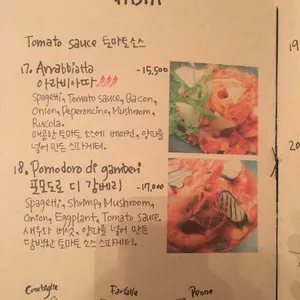 PASTA
Tomato sauce 토마토소스
17. Arrabbiatta -15,500
아라비아따
Spagetti, Tomato sauce, Bacon,
Onion, Peperoncino, Mushroom,
Rucola.
매콤한 토마토 소스에 베이컨, 양파를
넣어 만든 스파게티.
18. Pomodoro di gamberi
포모도로 디 감베리 -17,000
Spagetti, Shrimp, Mushroom,
Onion, Eggplant, Tomato sauce.
새우와 버섯, 양파를 넣어 만든
담백한 토마토 소스 스파게티.
Conchiglie Farfalle Penne